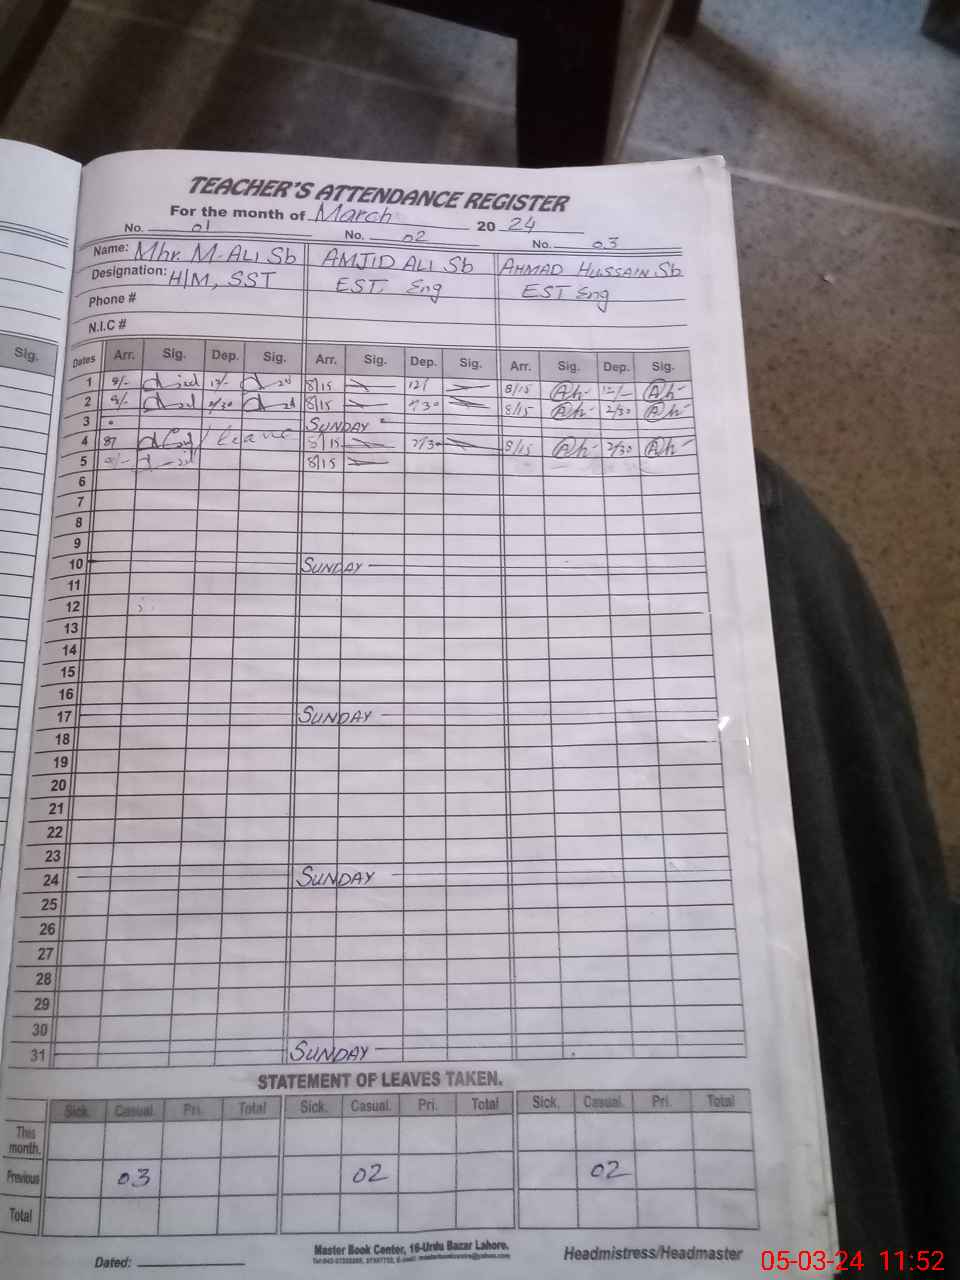 TEACHER'S ATTENDANCE REGISTER
For the month of March 2024
No. 01 No. 02 No. 03
Name: Mhr. M. ALI Sb AMJID ALI Sb AHMAD HUSSAIN Sb
Designation: H/M, SST EST, Eng EST Eng
Phone #
N.I.C #
Sig. Dates Arr. Sig. Dep. Sig. Arr. Sig. Dep. Sig. Arr. Sig. Dep. Sig.
1 8/- 12/- 8/15 12/ 8/15 Ah 12/- Ah
2 8/- 2/30 8/15 2/30 8/15 Ah 2/30 Ah
3 SUNDAY
4 leave 8/15 2/30 8/15 Ah 2/30 Ah
5 8/15
6
7
8
9
10 SUNDAY
11
12
13
14
15
16
17 SUNDAY
18
19
20
21
22
23
24 SUNDAY
25
26
27
28
29
30
31 SUNDAY
STATEMENT OF LEAVES TAKEN.
Sick. Casual. Pri. Total Sick. Casual. Pri. Total Sick. Casual. Pri. Total
This month.
Previous 03 02 02
Total
Dated: Master Book Center, 16-Urdu Bazar Lahore. Headmistress/Headmaster
05-03-24 11:52